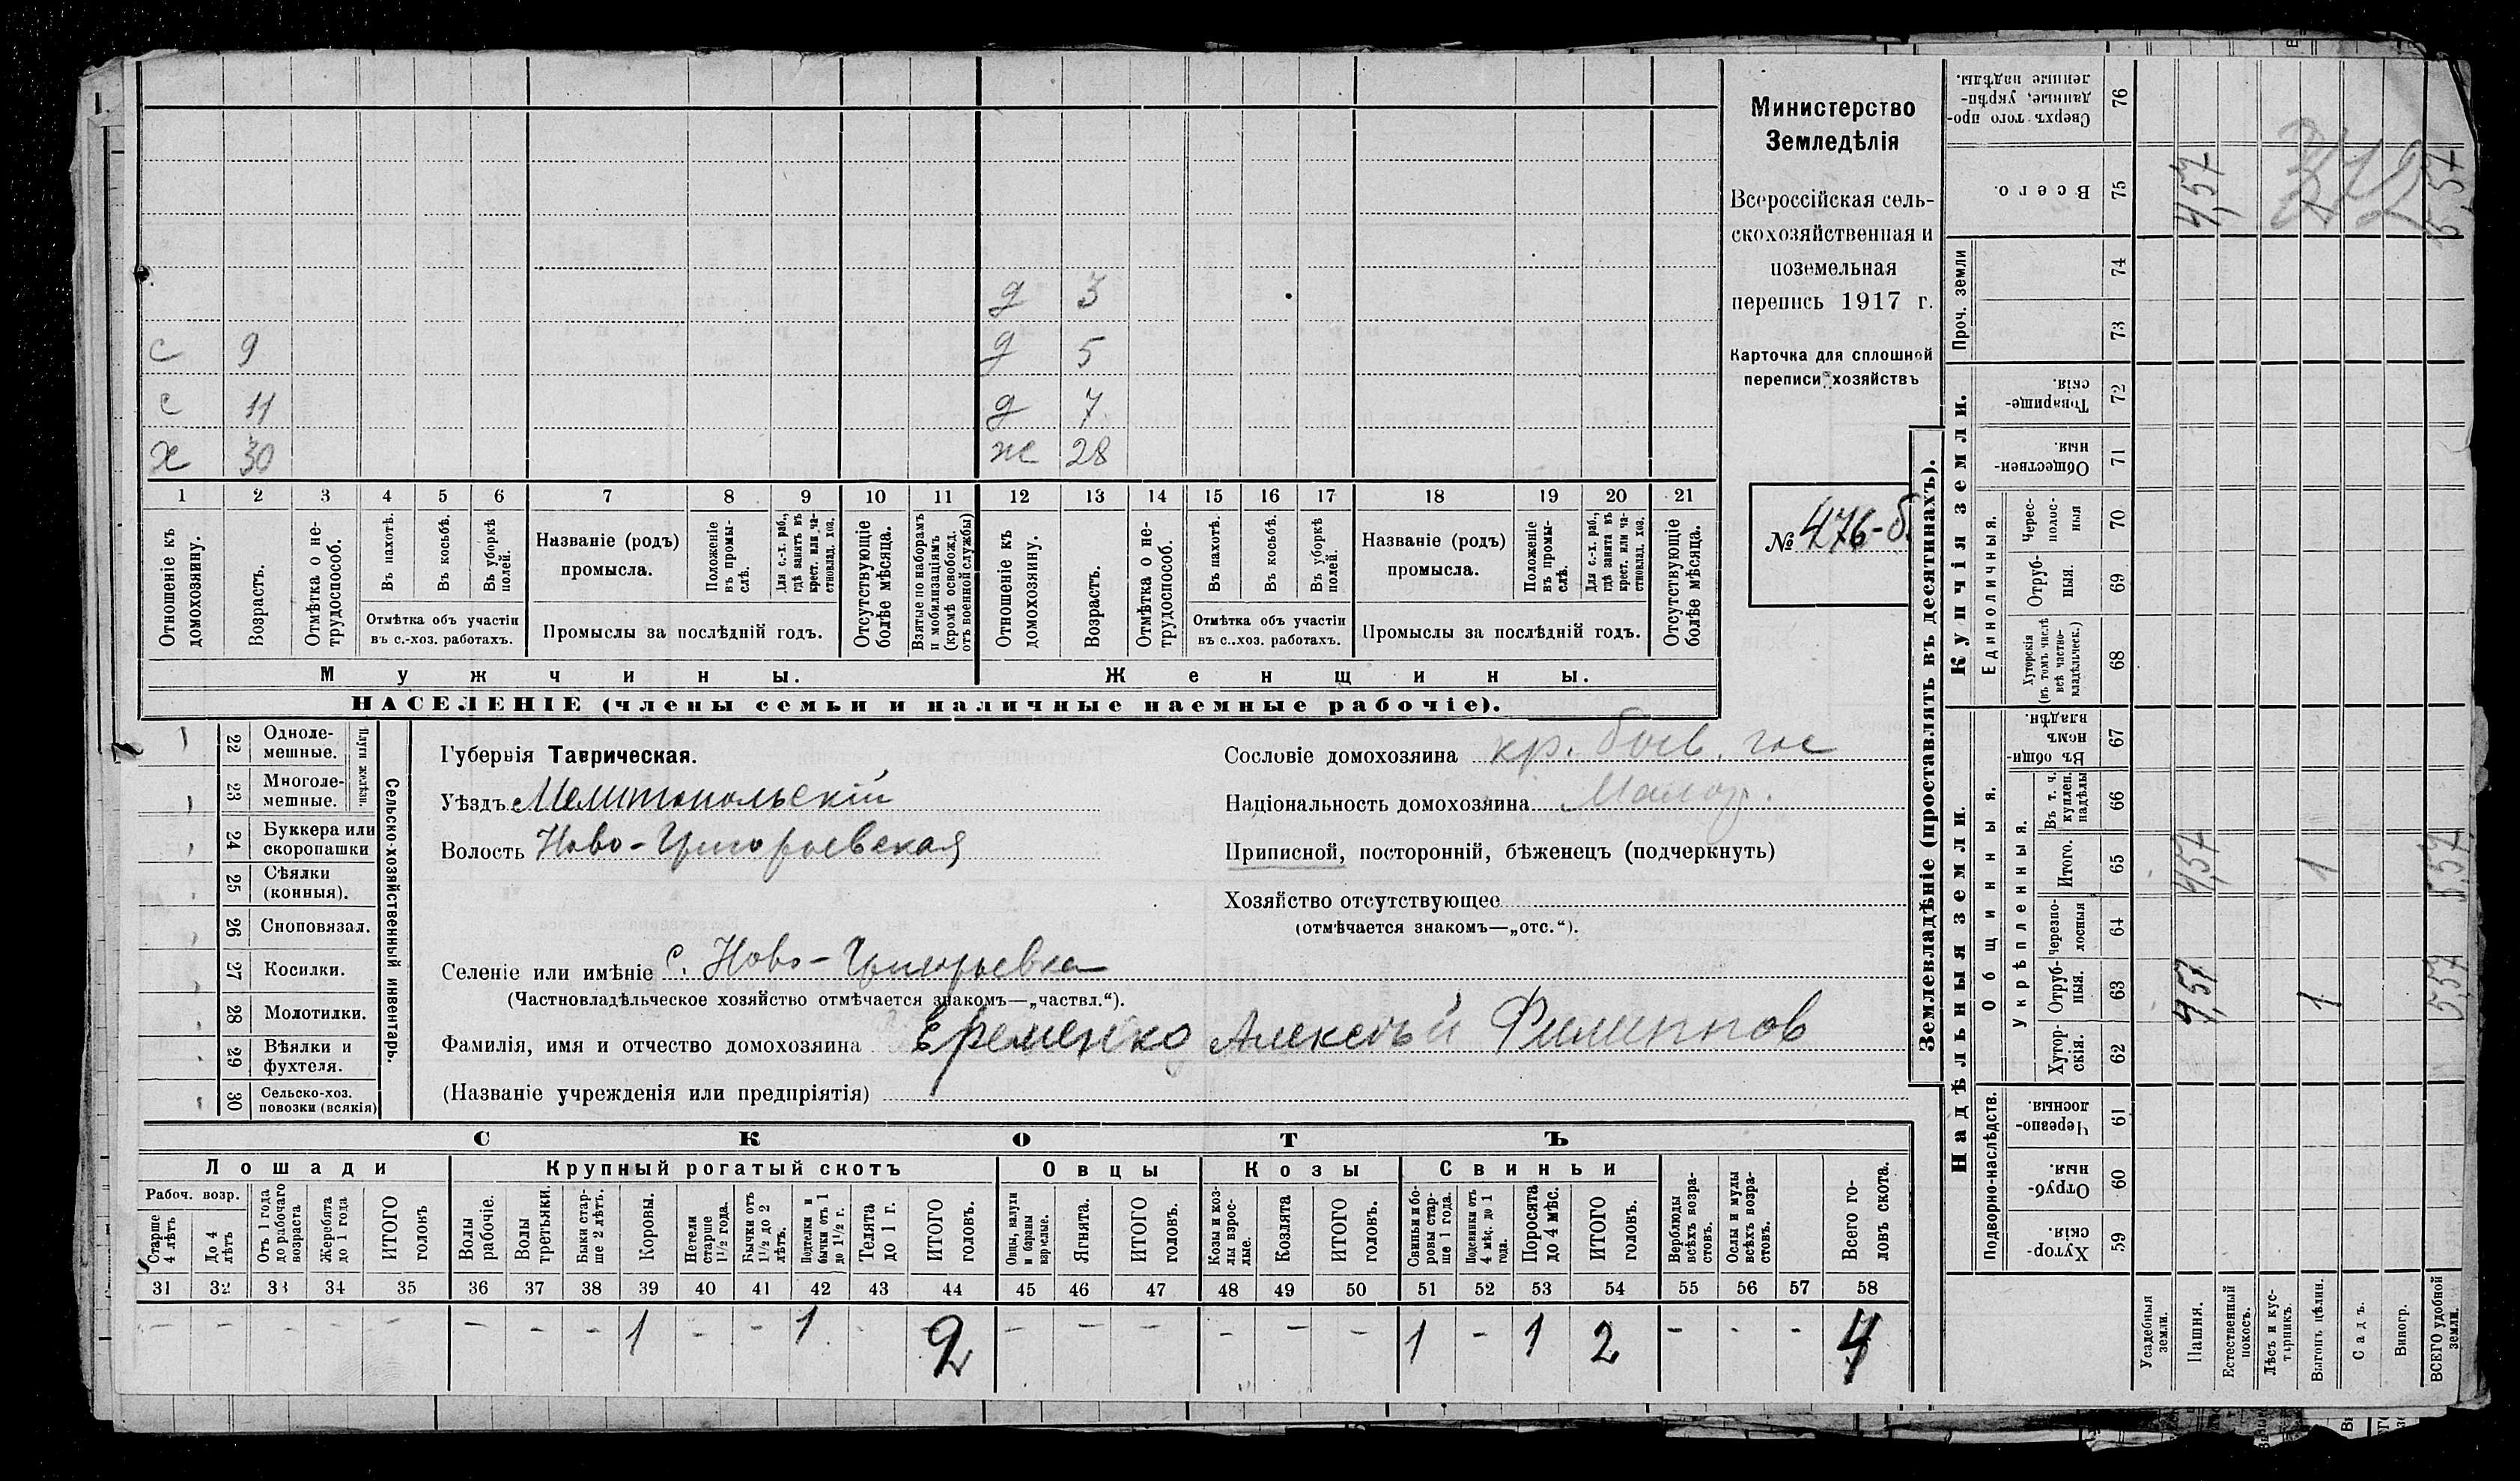 Министерство
Земледѣлія
Всероссійская сель-
скохозяйственная и
поземельная
перепись 1917 г.
Карточка для сплошной
переписи хозяйствъ
№ 476-б.
д 3
с 9 д 5
с 11 д 7
х 30 ж 28
1 2 3 4 5 6 7 8 9 10 11 12 13 14 15 16 17 18 19 20 21
Отношеніе къ домохозяину.
Возрастъ.
Отмѣтка о нетрудоспособ.
Въ пахотѣ.
Въ косьбѣ.
Въ уборкѣ полей.
Отмѣтка объ участіи
въ с.-хоз. работахъ.
Названіе (родъ)
промысла.
Положеніе въ промы-слѣ.
Для с.-х. раб., гдѣ занятъ въ крест. или ча-стновлад. хоз.
Промыслы за послѣдній годъ.
Отсутствующіе болѣе мѣсяца.
Взятые по наборамъ и мобилизаціямъ (кромѣ освобожд. отъ военной службы)
Отношеніе къ домохозяину.
Возрастъ.
Отмѣтка о не-трудоспособ.
Въ пахотѣ.
Въ косьбѣ.
Въ уборкѣ полей.
Отмѣтка объ участіи
въ с..хоз. работахъ.
Названіе (родъ)
промысла.
Положеніе въ промы-слѣ.
Для с.-х. раб., гдѣ занята въ крест. или ча-стновлад. хоз.
Промыслы за послѣдній годъ.
Отсутствующіе болѣе мѣсяца.
Мужчины. Женщины.
НАСЕЛЕНІЕ (члены семьи и наличные наемные рабочіе).
22 Одноле-мешные.
23 Многоле-мешные.
Плуги желѣзн.
24 Буккера или скоропашки
25 Сѣялки (конныя).
26 Сноповязал.
27 Косилки.
28 Молотилки.
29 Вѣялки и фухтеля.
30 Сельско-хоз. повозки (всякія)
Сельско-хозяйственный инвентарь.
Губернія Таврическая.
Уѣздъ Мелитопольскій
Волость Ново-Григорьевская
Селеніе или имѣніе с. Ново-Григорьевка
(Частновладѣльческое хозяйство отмѣчается знакомъ—„частвл.“).
Фамилія, имя и отчество домохозяина Еременко Алексѣй Филиппов
(Названіе учрежденія или предпріятія)
Сословіе домохозяина кр. быв. гос
Національность домохозяина Малор.
Приписной, посторонній, бѣженецъ (подчеркнуть)
Хозяйство отсутствующее
(отмѣчается знакомъ—„отс.“).
СКОТЪ
Лошади Крупный рогатый скотъ Овцы Козы Свиньи
Рабоч. возр.
Старше 4 лѣтъ
До 4 лѣтъ
Отъ 1 года до рабочаго возраста
Жеребята до 1 года
ИТОГО головъ
Волы рабочіе.
Волы третьяки.
Быки стар-ше 2 лѣтъ.
Коровы.
Нетели старше 1½ года.
Бычки отъ 1½ до 2 лѣтъ.
Подтелки и бычки отъ 1 до 1½ г.
Телята до 1 г.
ИТОГО головъ.
Овцы, валухи и бараны взрослые.
Ягнята.
ИТОГО головъ.
Козы и коз-лы взрос-лые.
Козлята
ИТОГО головъ.
Свиньи и бо-ровы стар-ше 1 года.
Подсвинки отъ 4 мѣс. до 1 года.
Поросята до 4 мѣс.
ИТОГО головъ.
Верблюды всѣхъ возра-стовъ.
Ослы и мулы всѣхъ возра-стовъ.
Всего го-ловъ скота.
31 32 33 34 35 36 37 38 39 40 41 42 43 44 45 46 47 48 49 50 51 52 53 54 55 56 57 58
– – – – – – – – 1 – – 1 – 2 – – – – – – 1 – 1 2 – – – 4
Землевладѣніе (проставлять въ десятинахъ).
Надѣльныя земли. Купчія земли. Проч. земли
Подворно-наслѣдств. Общинныя. Укрѣпленныя. Единоличныя.
59 Хутор-скія.
60 Отруб-ныя.
61 Черезпо-лосныя.
62 Хутор-скія.
63 Отруб-ныя.
64 Черезпо-лосныя
65 Итого.
66 Въ т. ч. куплен. надѣлы
67 Въ общин-номъ владѣн.
68 Хуторскія (въ томъ числѣ всѣ частно-владѣльческ.)
69 Отруб-ныя.
70 Черес-полос-ныя
71 Обществен-ныя
72 Товарище-скія.
73
74
75 Всего.
76 Сверхъ того про-данные, укрѣп-ленные надѣлы.
Усадебныя земли.
Пашня. 4,57 4,57 4,57
Естественный покосъ.
Лѣсъ и кус-тарникъ.
Выгонъ цѣлин. 1 1 1
Садъ.
Виногр.
ВСЕГО удобной земли. 5,57 5,57 5,57